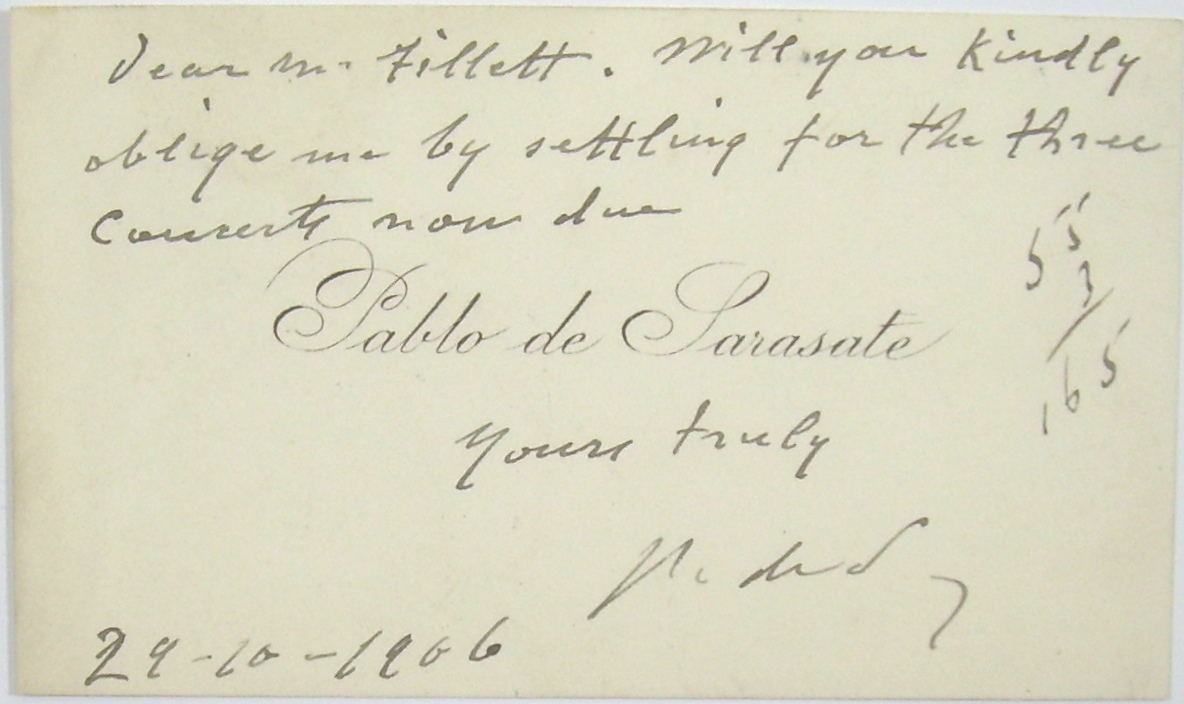 Dear Mr. Fillett. Will you kindly
oblige me by settling for the three
Concerts now due
Pablo de Sarasate
Yours truly
P. de S
29-10-1906
55
3/
165